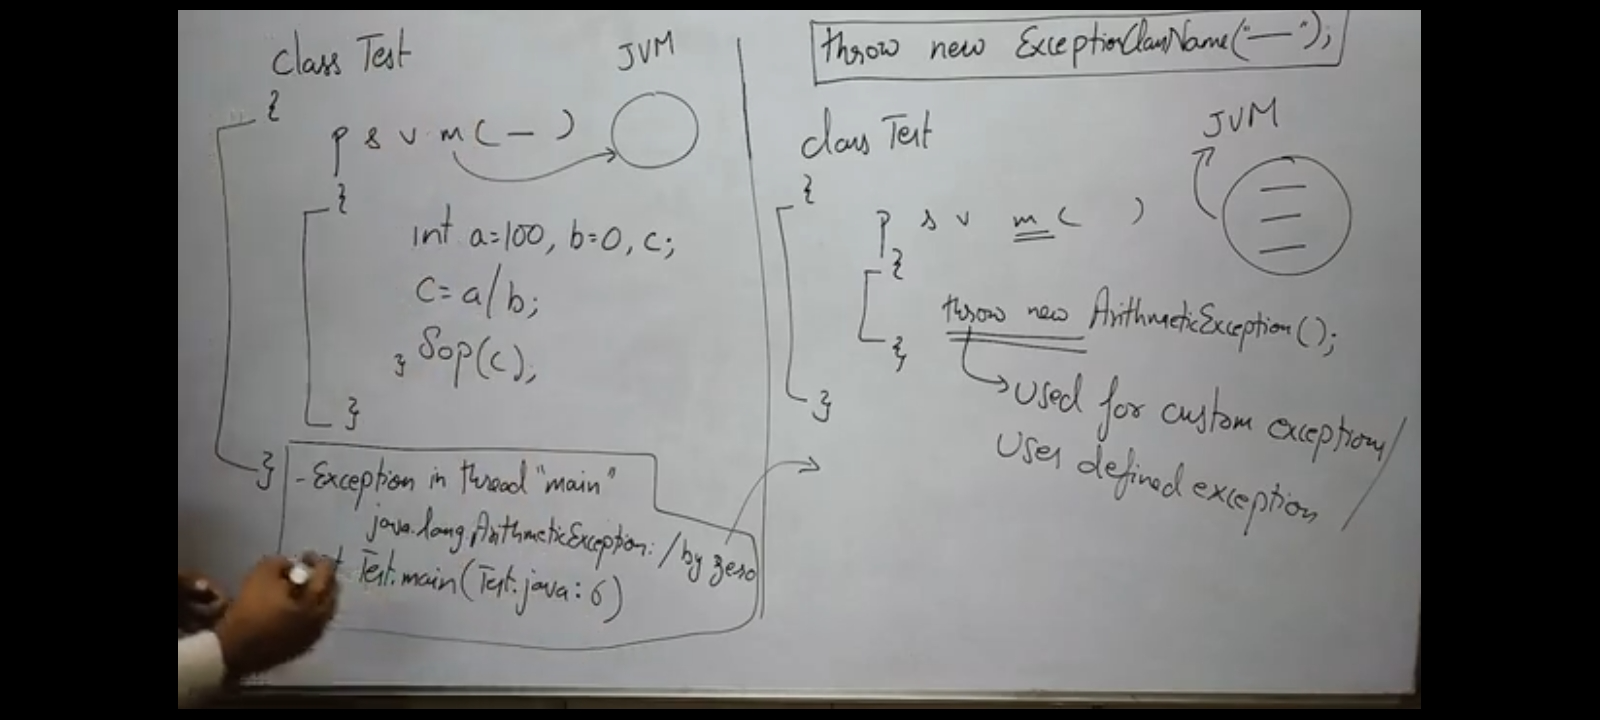 class Test
JVM
{
p s v m ( — )
{
int a=100, b=0, c;
c= a/b;
} Sop(c);
}
}
- Exception in thread "main"
java.lang.ArithmeticException: / by zero
Test.main(Test.java: 6)
throw new ExceptionClassName("—");
class Test
JVM
{
p s v m ( )
{
throw new ArithmeticException();
}
}
used for custom exception/
User defined exception